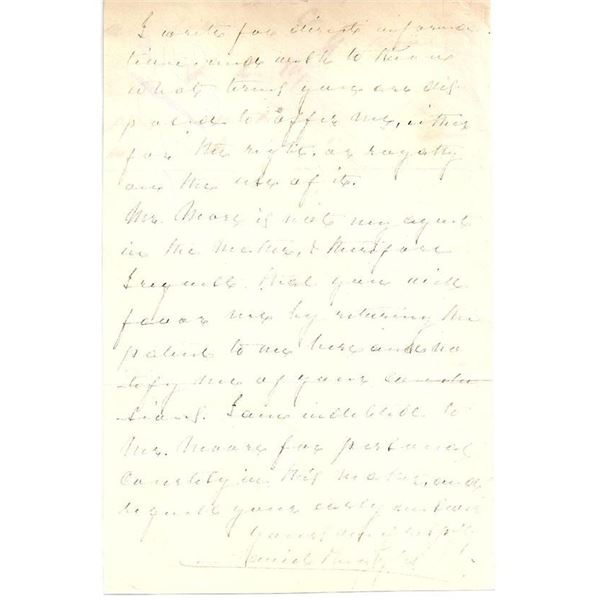 I write for direct informa
tion and wish to know
what terms you are dis
posed to offer me, either
for the right, or royalty
on the use of it.
Mr. Moore is not my agent
in the matter, & therefore
I request that you will
favor me by returning the
patent to me here and no
tify me of your conclu
sions. I am indebted to
Mr. Moore for personal
courtesy in this matter, and
request your early
Yours